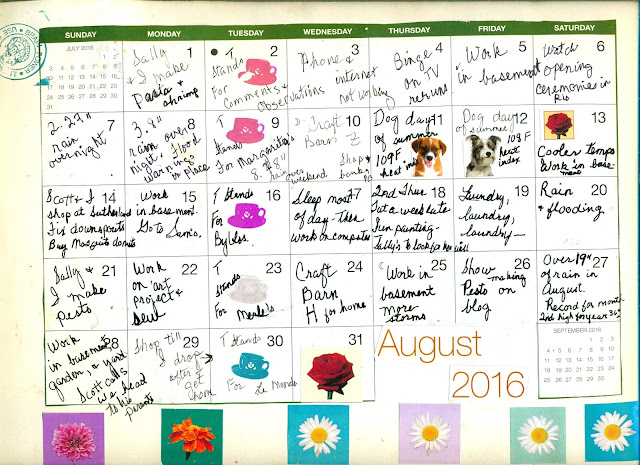 SUNDAY MONDAY TUESDAY WEDNESDAY THURSDAY FRIDAY SATURDAY
JULY 2016
1
Sally
& I make
Pasta &
shrimp
2
T
Stands
For
Comments &
Observations
3
Phone &
internet
not working
4
Binge
on TV
reruns
5
Work
in basement
6
Watch
opening
ceremonies in
Rio
7
2.23"
rain
overnight
8
3.9"
rain over
night, Flood
warnings
in Place
9
T
Stands
For Margarita's
8.78"
over
weekend
10
Craft
Barn
Shop &
bank
11
Dog day
of summer
109F
heat index
12
Dog day
of summer
109F
heat
index
13
Cooler temps
Work in base-
ment
14
Scott & I
shop at Sutherland
Fix downspouts
Buy Mosquito donuts
15
Work
in basement.
Go to Sam's.
16
T Stands
For
Bybloss.
17
Sleep most
of day - then
Work on computer
18
2nd Thur
Tat a week late
Fun painting-
19
Laundry,
laundry,
laundry
20
Rain
& flooding
21
Sally &
I make
pesto
22
Work
on art
project &
23
T
Stands
For
24
Craft
Barn
H for home
25
Work in
basement
more
storms
26
Show making
Pesto on
blog
27
Over 19"
of rain in
August.
Record for month
2nd high for year 36"
28
Work
in basement,
garden, & yard
Scott calls
we head
to his
parents
29
Shop till
I drop
after I
get
home
30
T Stands
For Le Monde
31
August
2016
SEPTEMBER 2016